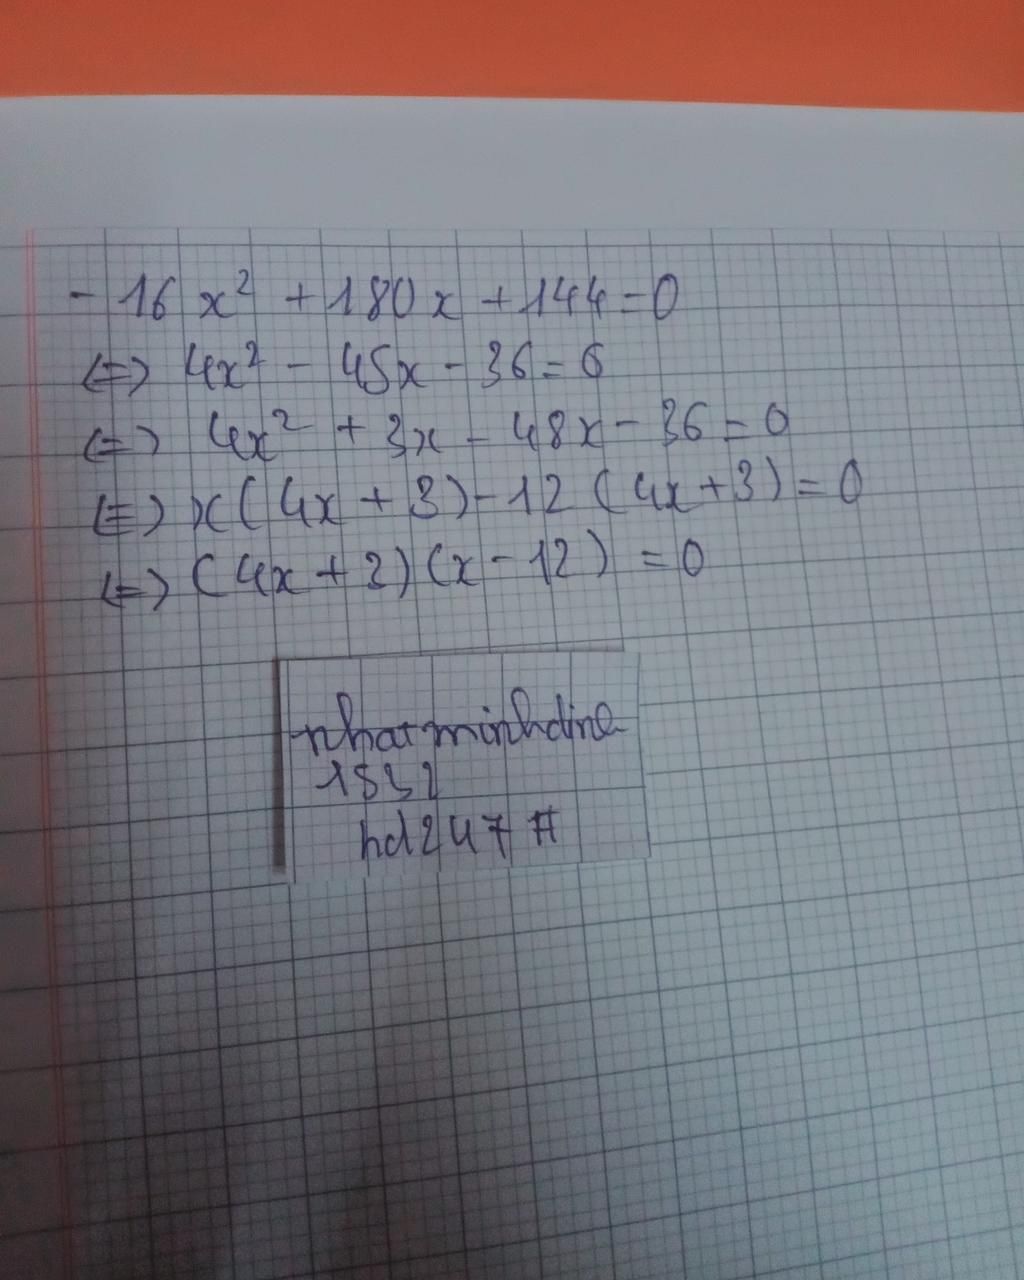 - 16x² + 180x + 144 = 0
(=) 4x² - 45x - 36 = 0
(=) 4x² + 3x - 48x - 36 = 0
(=) x(4x + 3) - 12(4x + 3) = 0
(=) (4x + 3)(x - 12) = 0
nhatminhdine
1532
hd247 #